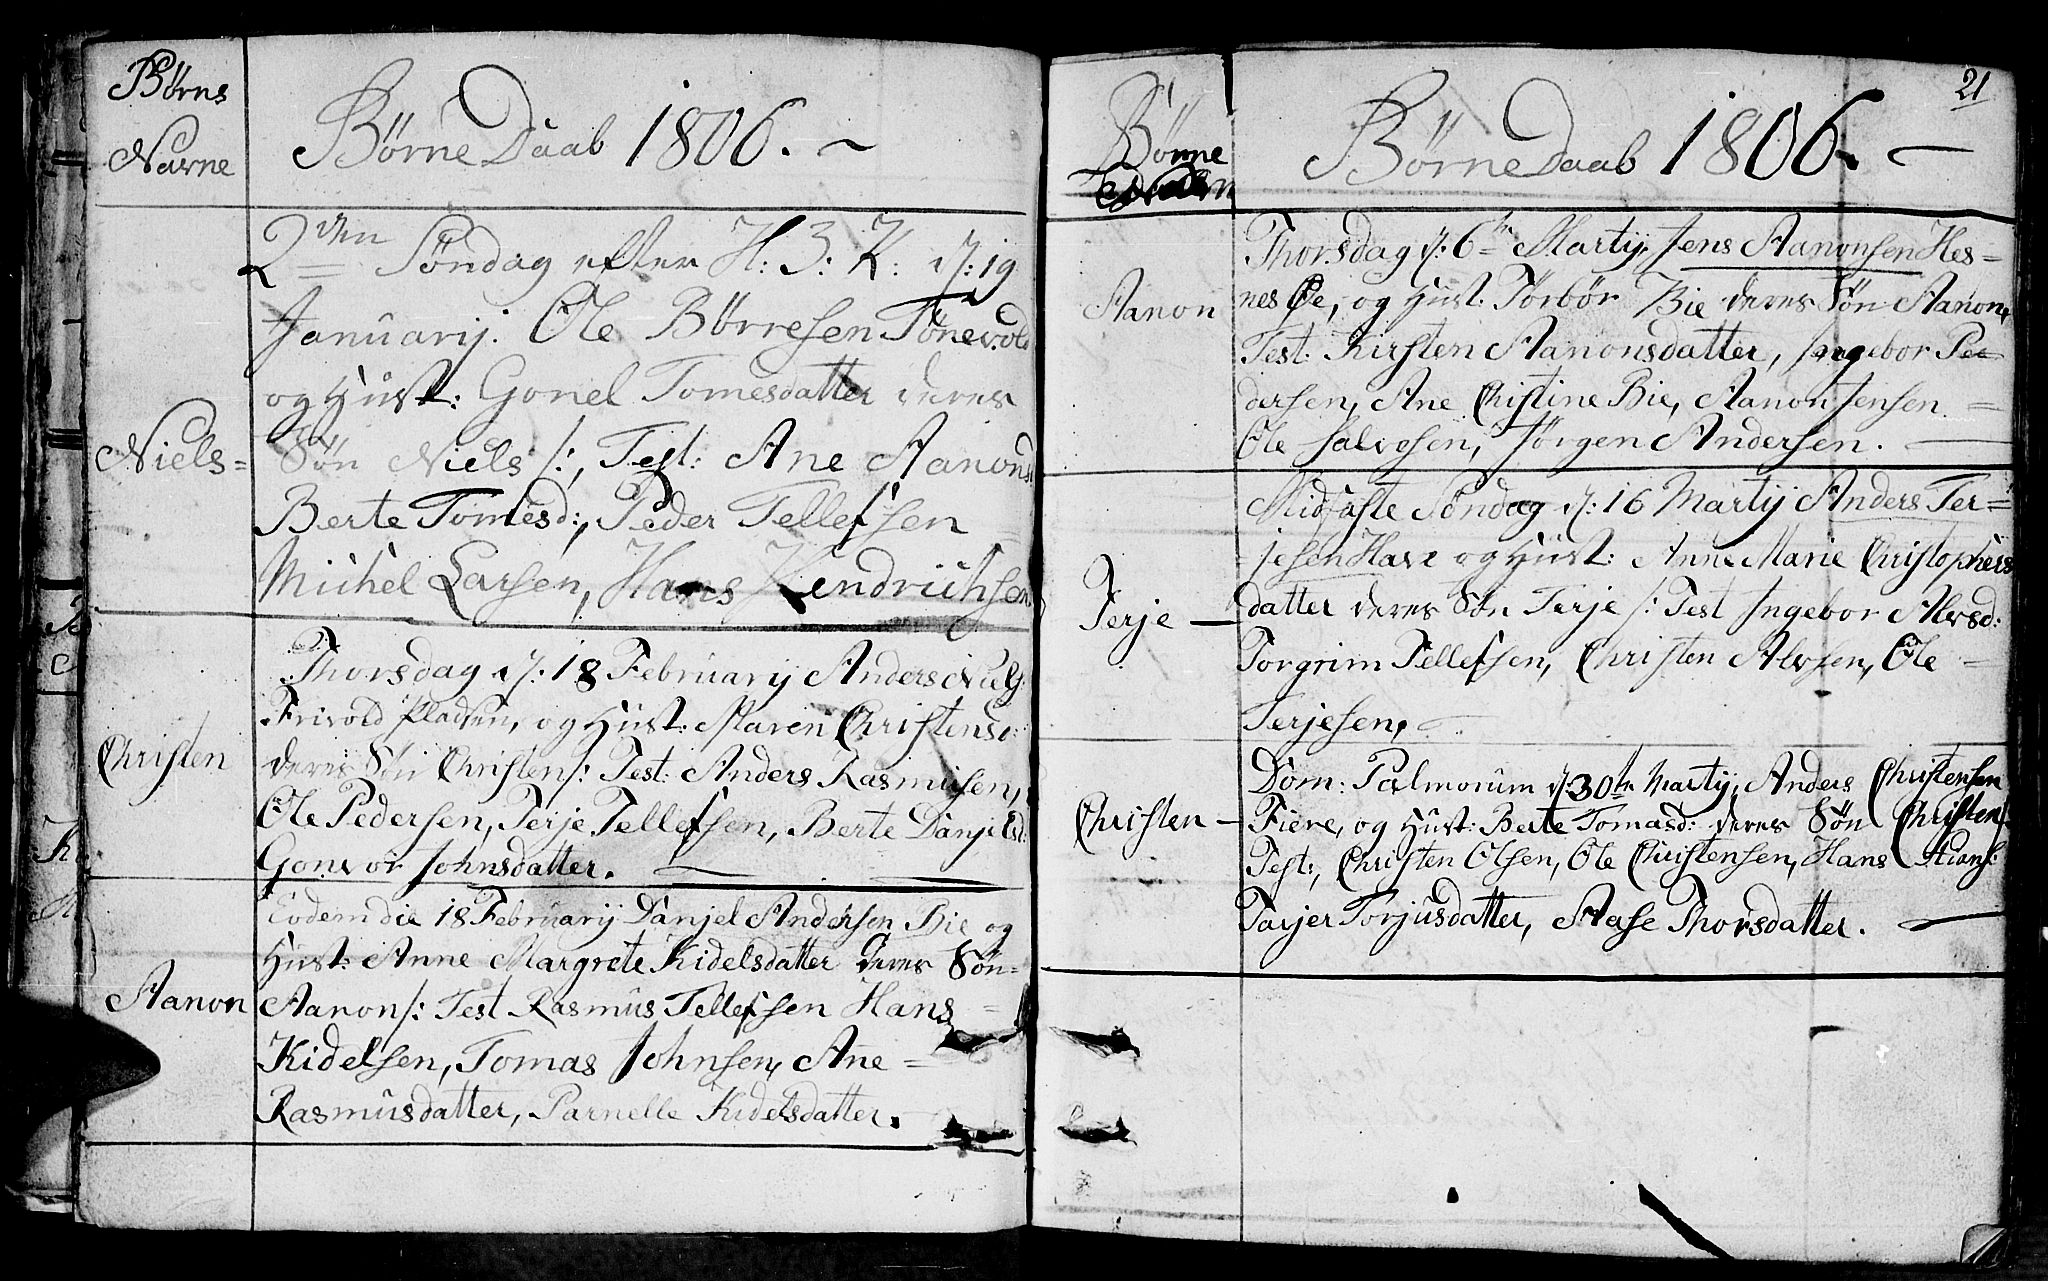 Børns
Navne
Børne Daab 1806. ~
2den Søndag efter H: 3: K: d: 19
Januarij. Ole Børresen Tønevold
og Hust: Gonel Tomesdatter deres
Niels =
Søn Niels /:, Test: Ane Aanonsd
Berte Tomesd:, Peder Tellefsen
Michel Larsen, Hans Hendrichsen
Thorsdag d: 18 February Anders Niels:
Frivold Pladsen, og Hust: Maren Christensd:
Christen
deres Søn Christen /: Test: Anders Rasmusen,
Ole Pedersen, Terje Tellefsen, Berte Danjelsd:
Gonvor Johnsdatter.
Eodem die 18 Februarij Danjel Andersen Bie og
Hust: Anne Margrete Kidelsdatter deres Søn
Aanon
Aanon /: Test Rasmus Tellefsen Hans
Kidelsen, Tomas Johnsen, Ane =
Rasmusdatter, Parnelle Kidelsdatter.
21
Børne
Børne Daab 1806. ~
Thorsdag d: 6te Martij, Jens Aanonsen Hes=
Aanon
nes Øe, og Hust: Tørbør Bie deres Søn Aanon,
Test: Kirsten Aanonsdatter, Ingebor Pe=
dersen, Ane Christine Bie, Aanon Jensen =
Ole Salvesen, Jørgen Andersen.
Midfaste Søndag d: 16 Martij Anders Ter=
jesen Have og Hust: Anne Marie Christophers
Terje —
datter deres Søn Terje /: Test Ingebor Alvsd:
Torgrim Tellefsen, Christen Alvsen, Ole =
Terjesen,
Dom: Palmorum d: 30te Martij, Anders Christensen
Christen —
Fiere, og Hust: Berte Tomasd: deres Søn Christen
Test:, Christen Olsen, Ole Christensen, Hans
Tarjer Torjusdatter, Aase Thorsdatter. —